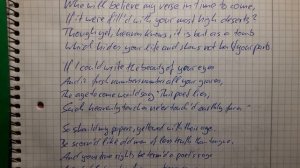 Who will believe my verse in time to come,
If it were fill'd with your most high deserts?
Though yet, heaven knows, it is but as a tomb
Which hides your life and shows not half your parts
If I could write the beauty of your eyes
And in fresh numbers number all your graces,
The age to come would say "This poet lies,
Such heavenly touches ne'er touch'd earthly
So should my papers, yellow'd with their age,
Be scorn'd like old men of less truth than tongue,
And your true rights be term'd a poet's rage